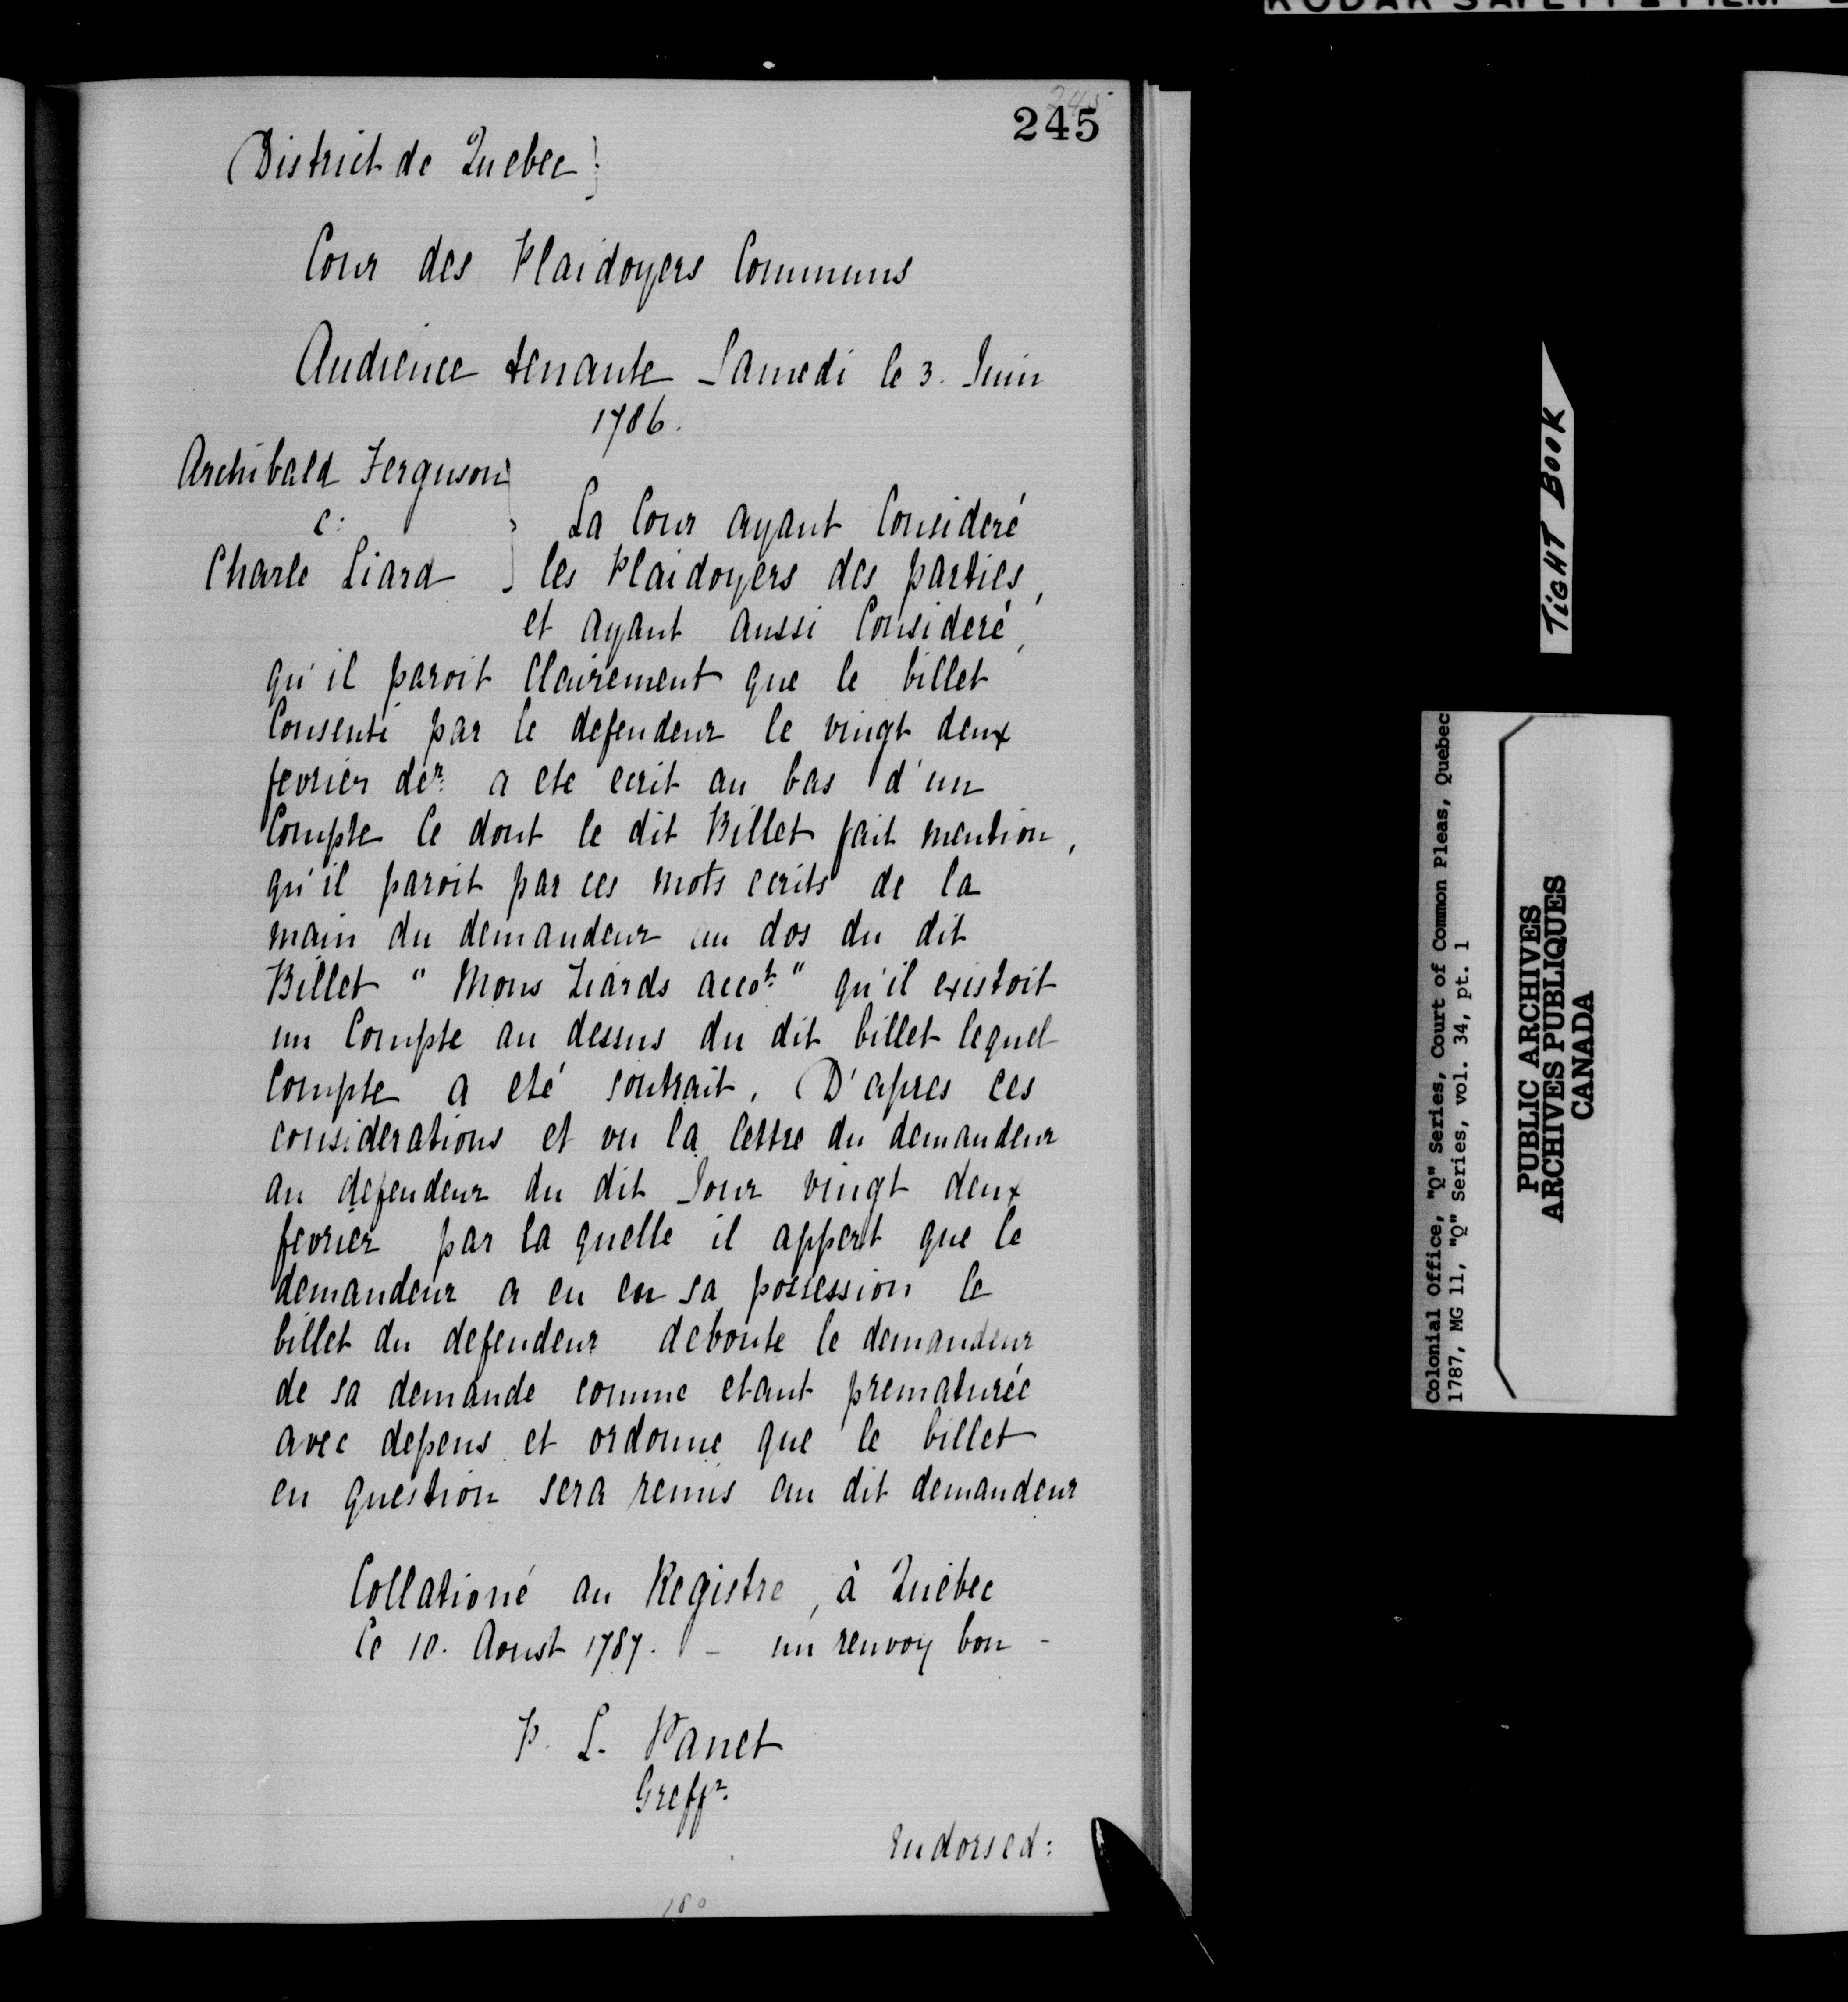 KODAK SAFETY FILM
245
245
District de Quebec }
Cour des Plaidoyers Communs
Audience tenante Samedi le 3. Juin
1786.
Archibald Ferguson
c:
La Cour ayant Consideré
Charle Liard } les Plaidoyers des parties,
et ayant aussi Consideré,
qu'il paroit Clairement que le billet
Consenti par le defendeur le vingt deux
fevrier der. a ete ecrit au bas d'un
Compte Ce dont le dit Billet fait mention,
qu'il paroit par ces mots ecrits de la
main du demandeur au dos du dit
Billet "Mons Liards accot." qu'il existoit
un Compte au dessus du dit billet lequel
Compte a eté soutrait. D'apres ces
considerations et vu la lettre du demandeur
au defendeur du dit Jour vingt deux
fevrier par la quelle il appert que le
demandeur a eu en sa possession le
billet du defendeur deboute le demandeur
de sa demande comme etant prematurée
avec depens et ordonne que le billet
en question sera remis au dit demandeur
Collationé au Registre, à Québec
Ce 10. Aoust 1787. - un renvoy bon -
P. L. Panet
Greffr.
Endorsed:
180
TIGHT BOOK
Colonial Office, "Q" Series, Court of Common Pleas, Quebec
1787, MG 11, "Q" Series, vol. 34, pt. 1
PUBLIC ARCHIVES
ARCHIVES PUBLIQUES
CANADA